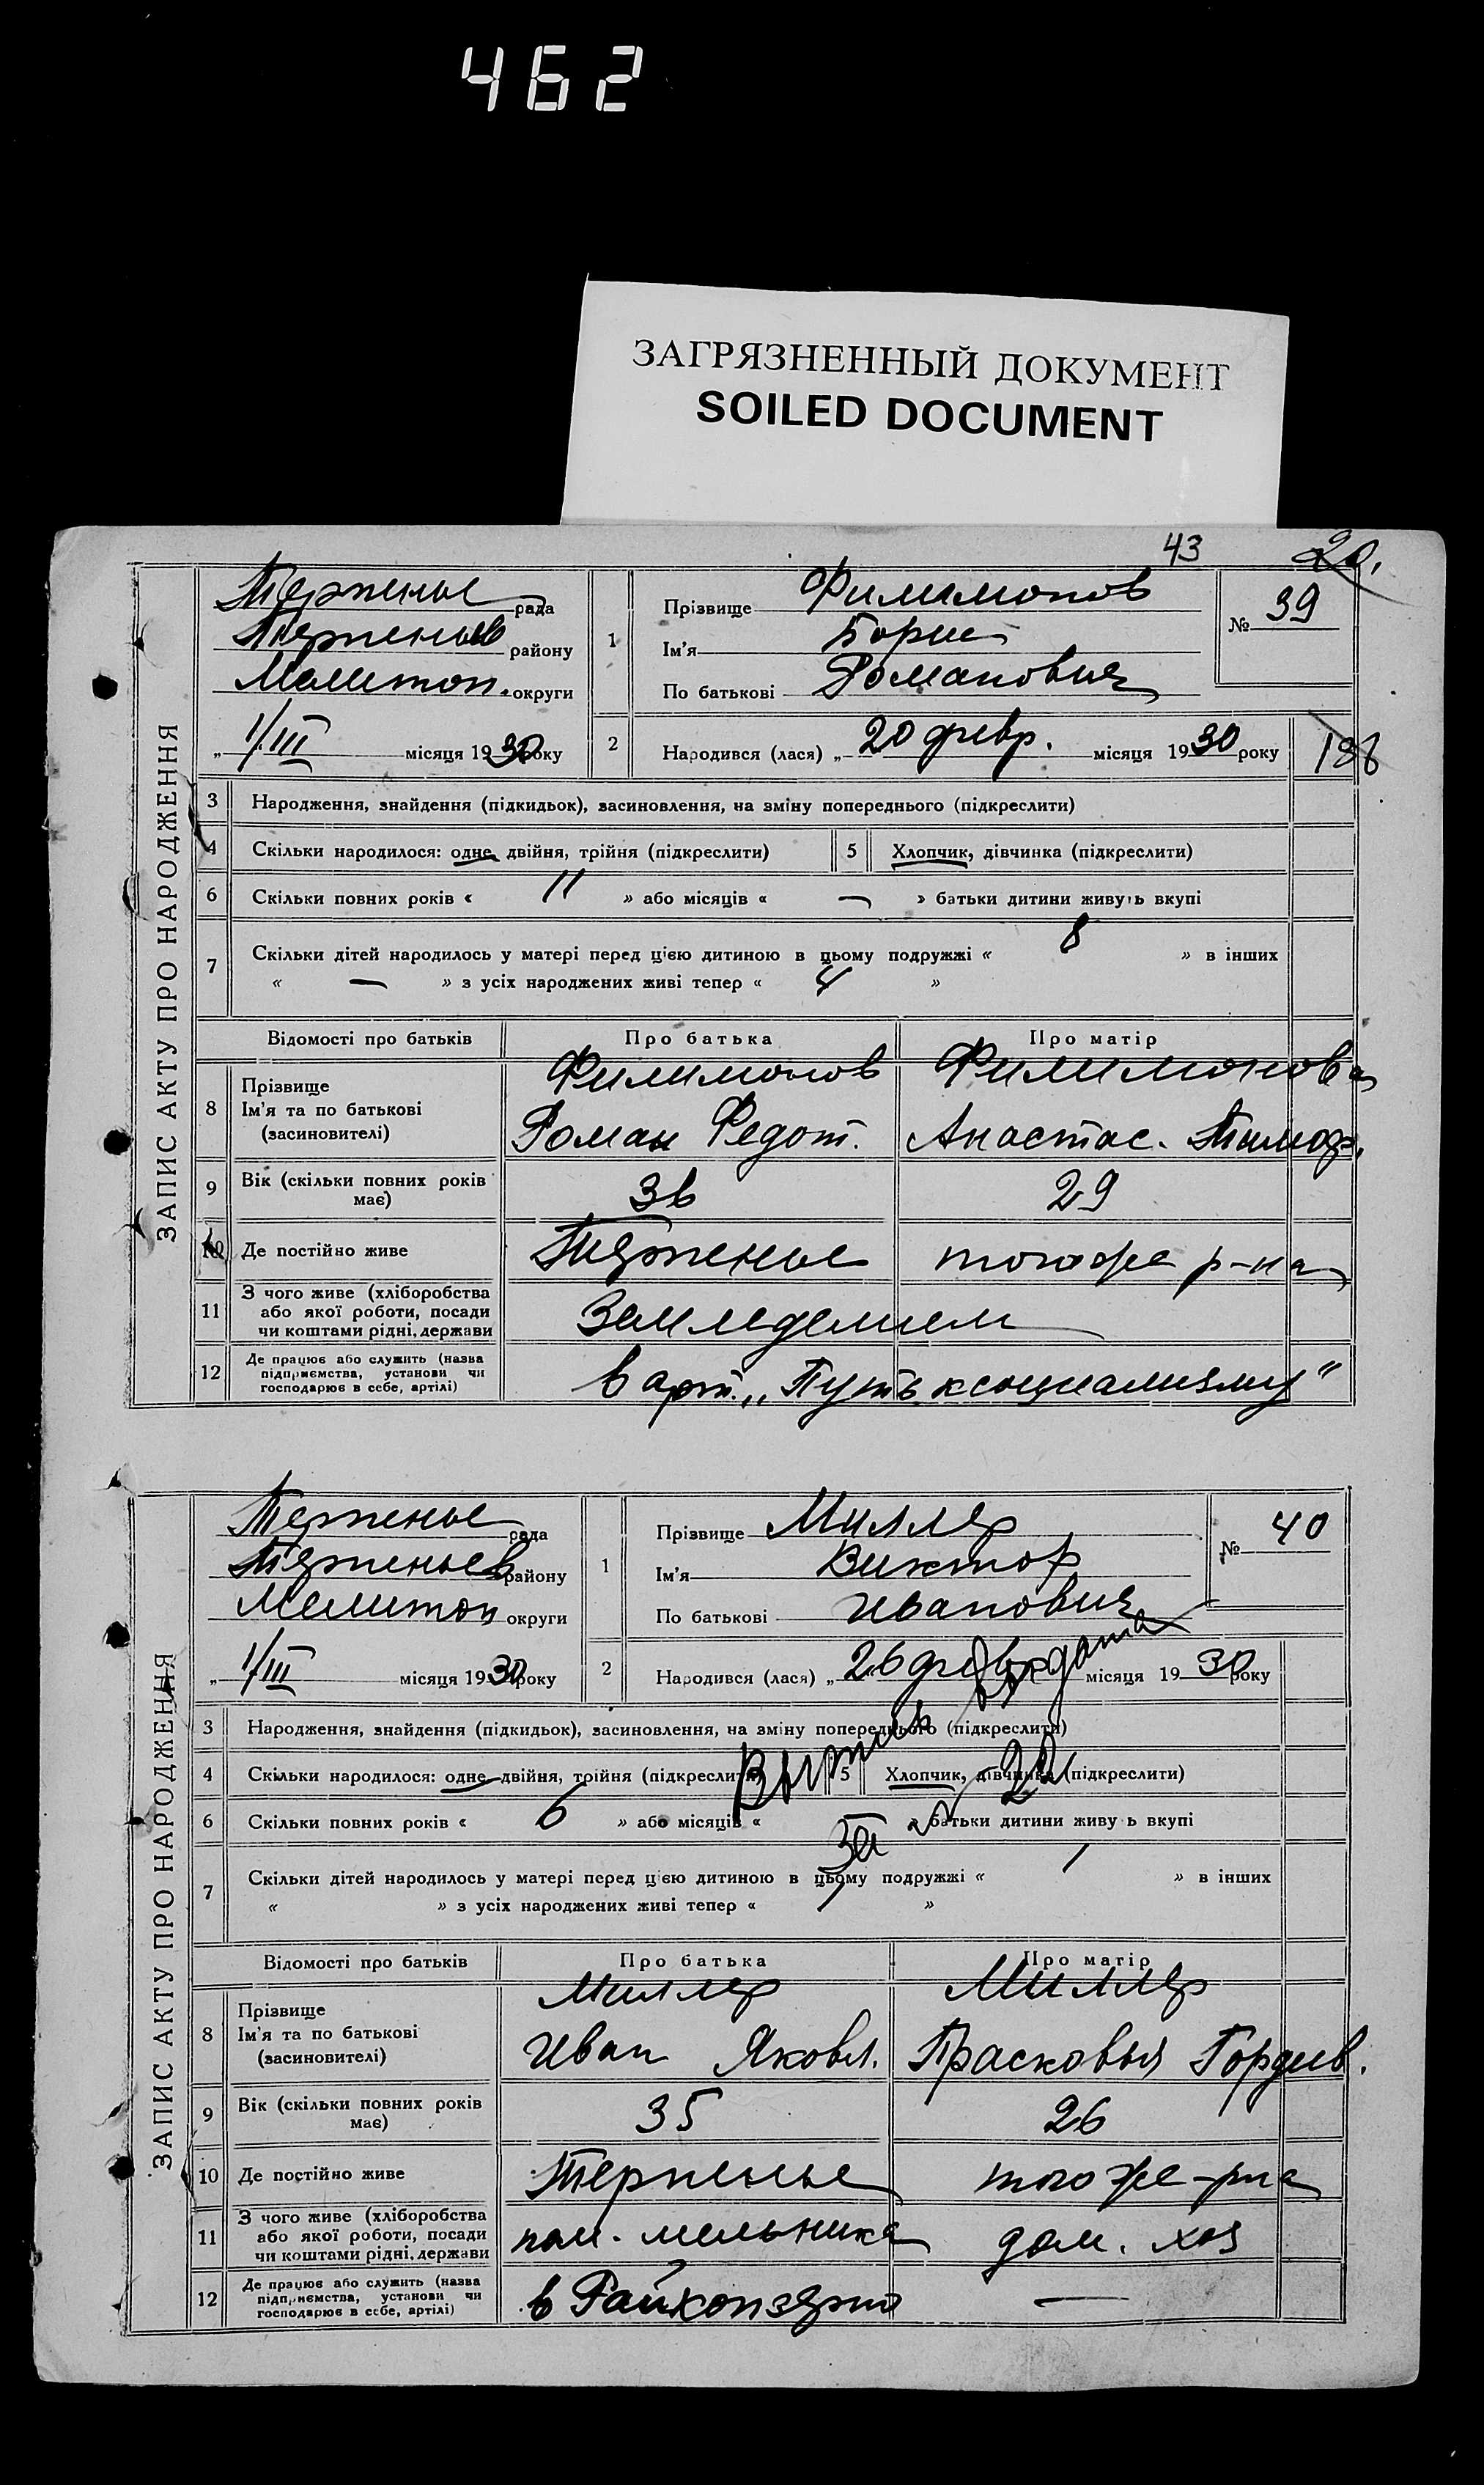 462
ЗАГРЯЗНЕННЫЙ ДОКУМЕНТ
SOILED DOCUMENT
43 20.
ЗАПИС АКТУ ПРО НАРОДЖЕННЯ
Терпенье рада
Терпеньев району
Мелитоп. округи
„ 1/III місяця 1930 року
1 Прізвище Филимонов
Ім'я Борис
По батькові Романович
№ 39
2 Народився (лася) „ 20 февр. місяця 1930 року
186
3 Народження, знайдення (підкидьок), засиновлення, на зміну попереднього (підкреслити)
4 Скільки народилося: одне, двійня, трійня (підкреслити) 5 Хлопчик, дівчинка (підкреслити)
6 Скільки повних років « 11 » або місяців « — » батьки дитини живуть вкупі
7 Скільки дітей народилось у матері перед цією дитиною в цьому подружжі « 8 » в інших
« — » з усіх народжених живі тепер « 4 »
Відомості про батьків Про батька Про матір
8 Прізвище Филимонов Филимонова
Ім'я та по батькові
(засиновителі) Роман Федот. Анастас. Тимоф.
9 Вік (скільки повних років має) 36 29
10 Де постійно живе Терпенье того же р-на
11 З чого живе (хліборобства
або якої роботи, посади
чи коштами рідні, держави Земледелием
12 Де працює або служить (назва
підприємства, установи чи
господарює в себе, артілі) в арт. „Путь к социализму"
ЗАПИС АКТУ ПРО НАРОДЖЕННЯ
Терпенье рада
Терпеньев району
Мелитоп округи
„ 1/III місяця 1930 року
1 Прізвище Миллер
Ім'я Виктор
По батькові Иванович
№ 40
2 Народився (лася) „ 26 февр місяця 1930 року
3 Народження, знайдення (підкидьок), засиновлення, на зміну попереднього (підкреслити)
4 Скільки народилося: одне, двійня, трійня (підкреслити) 5 Хлопчик, дівчинка (підкреслити)
6 Скільки повних років « 6 » або місяців « » батьки дитини живу ь вкупі
7 Скільки дітей народилось у матері перед цією дитиною в цьому подружжі « 1 » в інших
« » з усіх народжених живі тепер « 1 »
Выпись выдана
за № 22
Відомості про батьків Про батька Про матір
8 Прізвище Миллер Миллер
Ім'я та по батькові
(засиновителі) Иван Яковл. Прасковья Гордеев.
9 Вік (скільки повних років має) 35 26
10 Де постійно живе Терпенье того же р-на
11 З чого живе (хліборобства
або якої роботи, посади
чи коштами рідні, держави пом. мельника дом. хоз
12 Де працює або служить (назва
підприємства, установи чи
господарює в себе, артілі) в Райкопзерно —